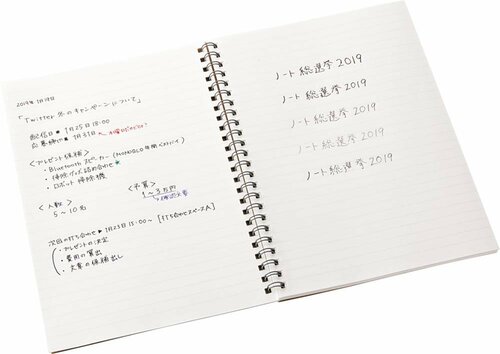 2019年1月18日
「Twitter 冬のキャンペーンについて」
配信日 1月25日 18:00
応募締切 1月31日
<プレゼント候補>
・Bluetooth スピーカー
・掃除グッズ詰め合わせ
・ロボット掃除機
<人数>
5〜10名
<予算>
1〜3万円
次回の打ち合わせ 1月23日 15:00〜 [打ち合わせスペースA]
・プレゼントの決定
・費用の算出
・文章の候補出し
ノート総選挙2019
ノート総選挙2019
ノート総選挙2019
ノート総選挙2019
ノート総選挙2019